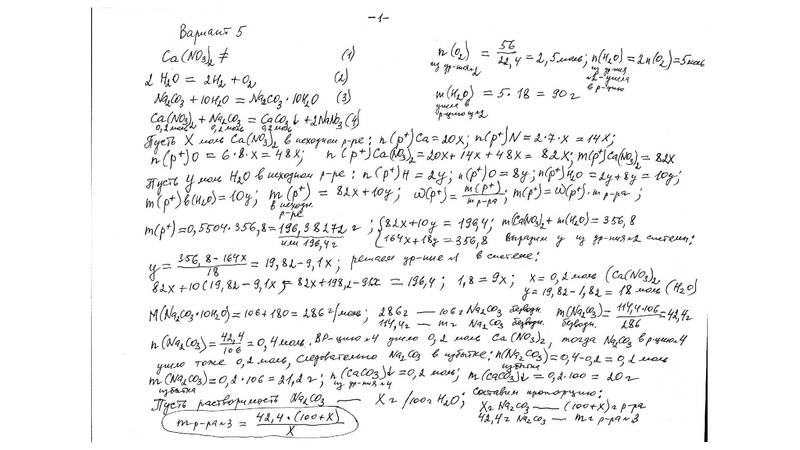 -1-
Вариант 5
Ca(NO3)2 ≠ (1)
2 H2O = 2H2 + O2 (2)
Na2CO3 + 10H2O = Na2CO3 · 10H2O (3)
Ca(NO3)2 + Na2CO3 = CaCO3↓ + 2NaNO3 (4)
0,2 моль 0,2 моль 0,2 моль
n(O2) = 56/22,4 = 2,5 моль; n(H2O) = 2n(O2) = 5 моль
из ур-ния 2 из ур-ния
№2 - ушла
в р-цию
m(H2O) = 5 · 18 = 90 г
ушла в
р-цию 2
Пусть X моль Ca(NO3)2 в исходном р-ре: n(p+)Ca = 20x; n(p+)N = 2·7·x = 14x;
n(p+)O = 6·8·x = 48x; n(p+)Ca(NO3)2 = 20x + 14x + 48x = 82x; m(p+)Ca(NO3)2 = 82x
Пусть y моль H2O в исходном р-ре: n(p+)H = 2y; n(p+)O = 8y; n(p+)H2O = 2y + 8y = 10y;
m(p+)в(H2O) = 10y; m(p+) = 82x + 10y; ω(p+) = m(p+)/m р-ра; m(p+) = ω(p+) · m р-ра;
в исходн.
р-ре
m(p+) = 0,5504 · 356,8 = 196,38272 г; {82x + 10y = 196,4; m Ca(NO3)2 + m(H2O) = 356,8
или 196,4 г {164x + 18y = 356,8 выразим y из ур-ния 2 системы:
y = 356,8 - 164x/18 = 19,82 - 9,1x; решаем ур-ние 1 в системе:
82x + 10(19,82 - 9,1x = 82x + 198,2 - 91x = 196,4; 1,8 = 9x; x = 0,2 моль (Ca(NO3)2
y = 19,82 - 1,82 = 18 моль (H2O)
M(Na2CO3·10H2O) = 106 + 180 = 286 г/моль; 286 г — 106 г Na2CO3 безводн. m(Na2CO3) = 114,4·106/286 = 42,4 г
114,4 г — m г Na2CO3 безводн. безводн.
n(Na2CO3) = 42,4/106 = 0,4 моль. В р-цию 4 ушло 0,2 моль Ca(NO3)2, тогда Na2CO3 в р-цию 4
ушло тоже 0,2 моль, следовательно Na2CO3 в избытке: n(Na2CO3) = 0,4 - 0,2 = 0,2 моль
избытка
m(Na2CO3) = 0,2 · 106 = 21,2 г; n(CaCO3)↓ = 0,2 моль; m(CaCO3)↓ = 0,2·100 = 20 г
избытка из ур-ния 4
Пусть растворимость Na2CO3 — X г/100 г H2O; составим пропорцию:
X г Na2CO3 — (100+X) г р-ра
42,4 г Na2CO3 — m г р-ра 3
m р-ра 3 = 42,4 · (100+X)/X